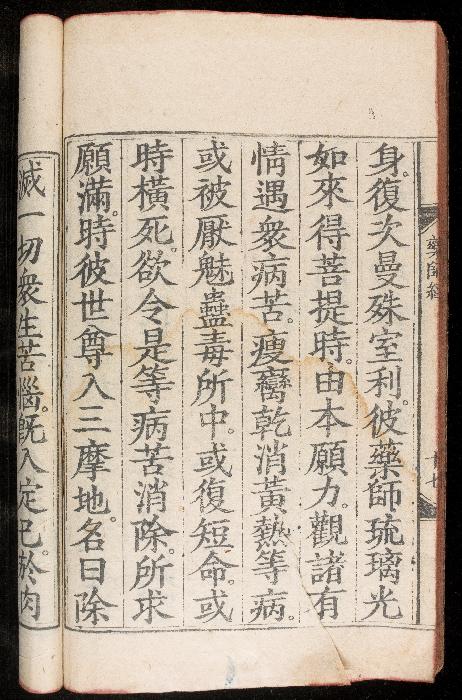 藥師經
十七
身。復次曼殊室利。彼藥師琉璃光
如來得菩提時。由本願力。觀諸有
情遇衆病苦。瘦𤼣乾消黃熱等病。
或被厭魅蠱毒所中。或復短命。或
時橫死。欲令是等病苦消除。所求
願滿。時彼世尊入三摩地。名曰除
滅一切衆生苦惱。旣入定已。於肉